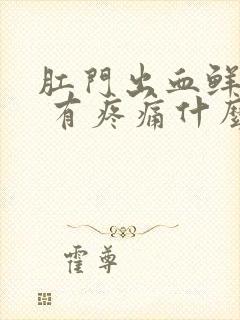 肛門出血鮮
有疼痛什麼
霍尊